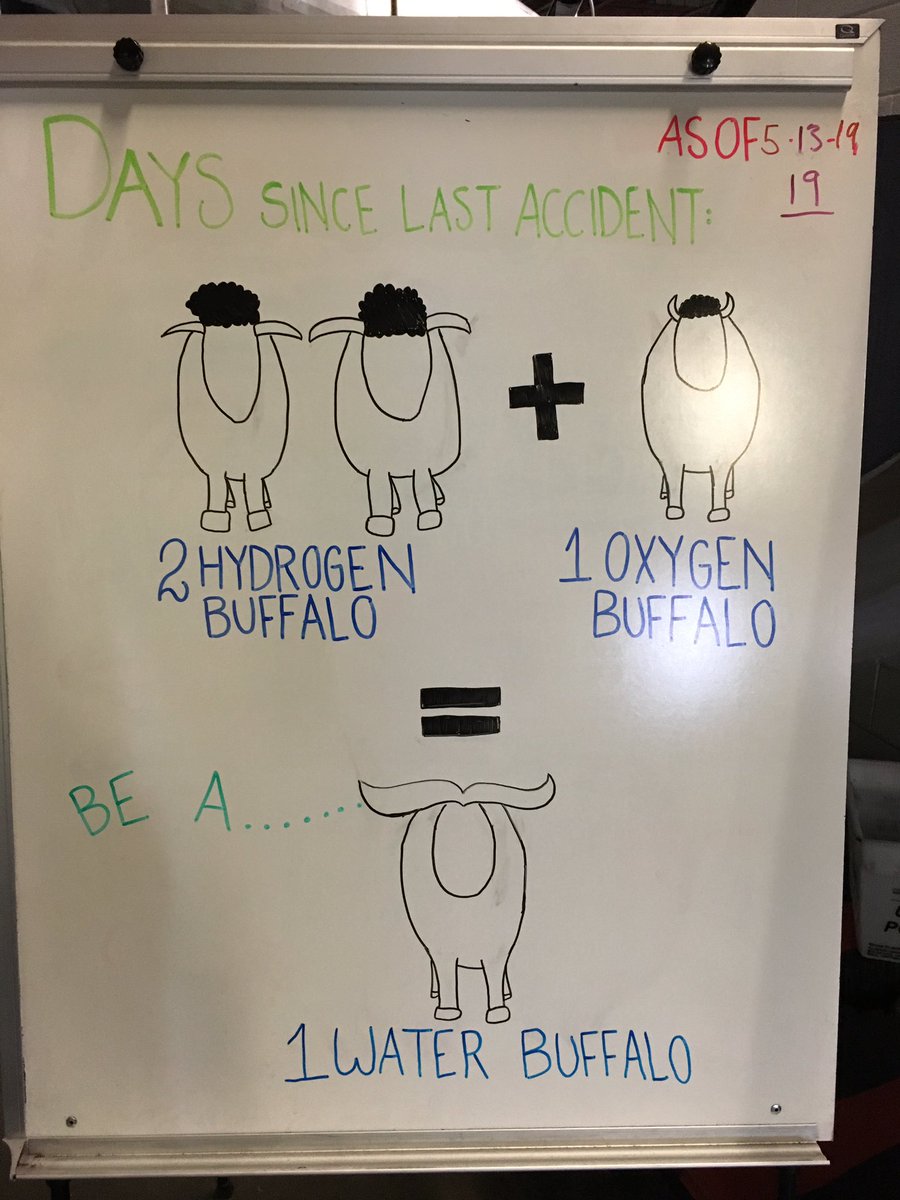 DAYS SINCE LAST ACCIDENT:
AS OF 5-13-19
19
2 HYDROGEN
BUFFALO
+
1 OXYGEN
BUFFALO
=
BE A.......
1 WATER BUFFALO